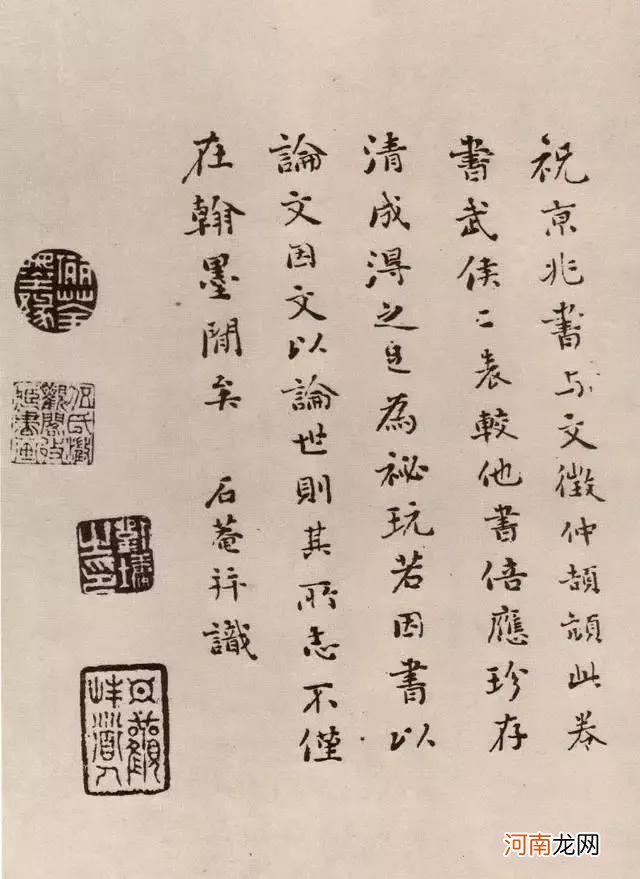 祝京兆書與文徵仲頡頏此卷
書武侯二表較他書倍應珍存
清成得之足為祕玩若因書以
論文因文以論世則其所志不僅
在翰墨間矣 石菴并識
劉墉之印
河南龙网